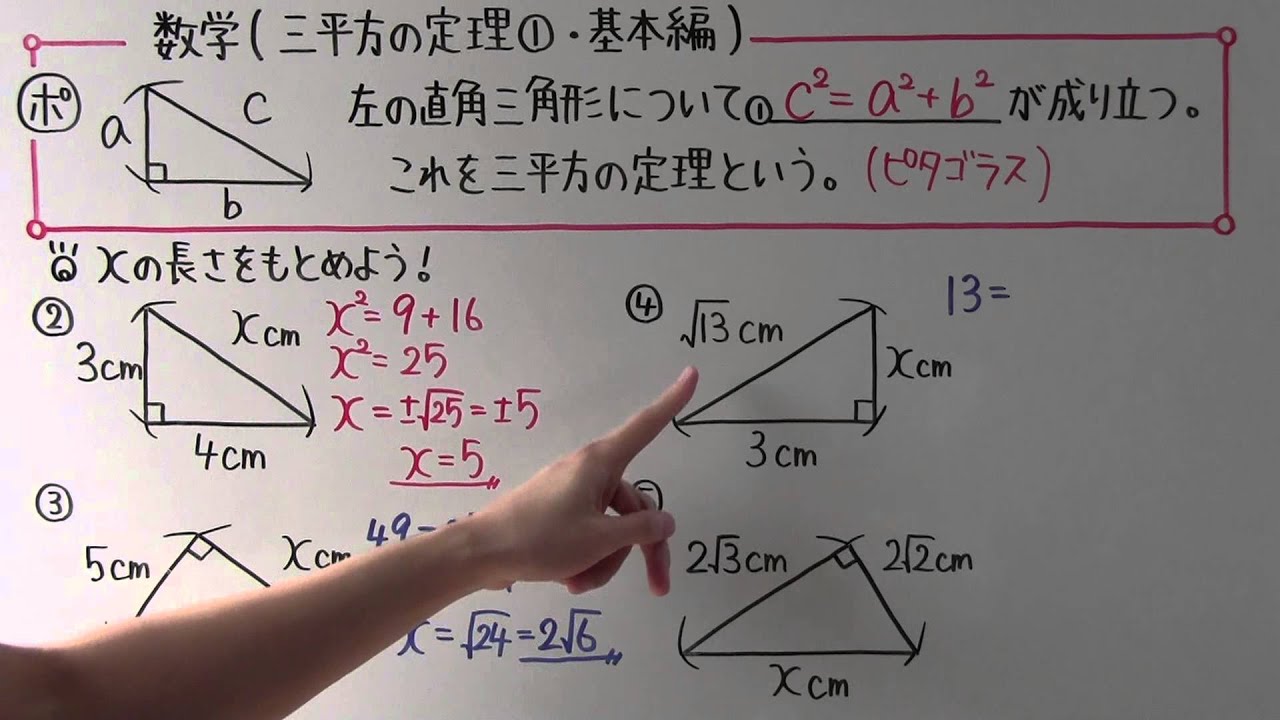 数学(三平方の定理①・基本編)
ポ
a
c
b
左の直角三角形について①c²=a²+b²が成り立つ。
これを三平方の定理という。(ピタゴラス)
xの長さをもとめよう!
②
3cm
xcm
4cm
x²=9+16
x²=25
x=±√25=±5
x=5
③
5cm
xcm
49
x=√24=2√6
④
√13cm
xcm
3cm
13=
2√3cm
2√2cm
xcm